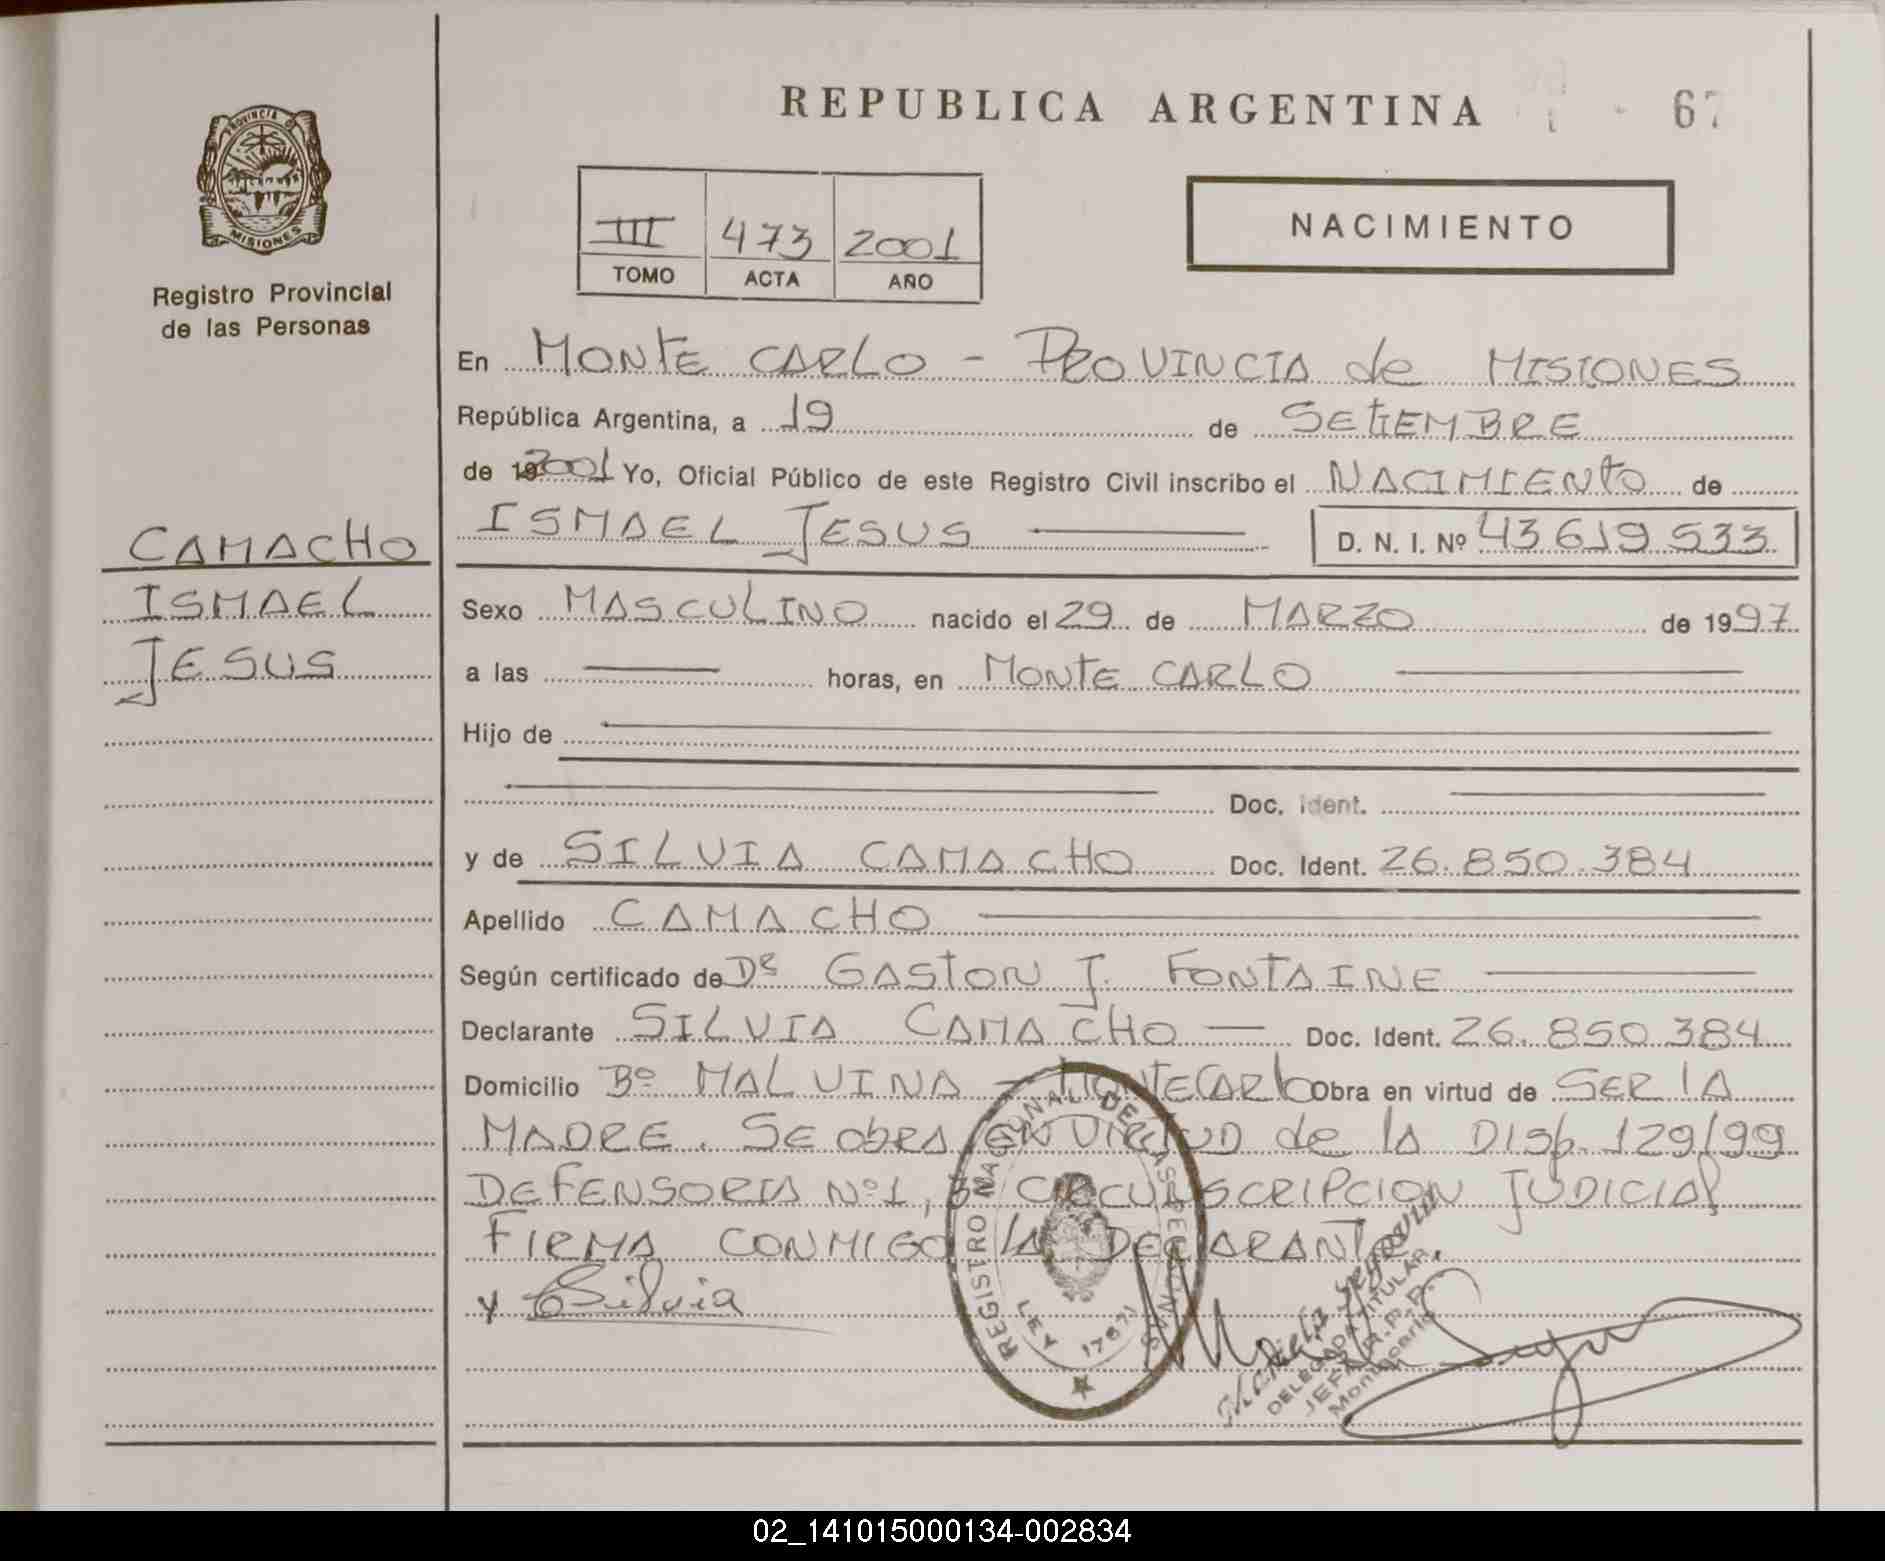 REPUBLICA ARGENTINA
67
PROVINCIA DE
MISIONES
Registro Provincial
de las Personas
III 473 2001
TOMO ACTA AÑO
NACIMIENTO
En MONTE CARLO - PROVINCIA de MISIONES
República Argentina, a 19 de SETIEMBRE
de 19 2001 Yo, Oficial Público de este Registro Civil inscribo el NACIMIENTO de
ISMAEL JESUS D. N. I. Nº 43 619 533
CAMACHO
ISMAEL
JESUS
Sexo MASCULINO nacido el 29 de MARZO de 1997
a las horas, en MONTE CARLO
Hijo de
Doc. Ident.
y de SILVIA CAMACHO Doc. Ident. 26.850.384
Apellido CAMACHO
Según certificado de Dr GASTON J. FONTAINE
Declarante SILVIA CAMACHO Doc. Ident. 26.850.384
Domicilio Bº MALVINA - MONTECARLO Obra en virtud de SER LA
MADRE. SE obRA EN VIRTUD de LA DISP. 129/99
DEFENSORIA Nº1, 3º CIRCUNSCRIPCION JUDICIAL
FIRMA CONMIGO LA DECLARANTE.
y Silvia
REGISTRO NACIONAL DE LAS PERSONAS
LEY 17671
DELEGADA TITULAR
JEFA R.P.P.
Montecarlo
02_141015000134-002834